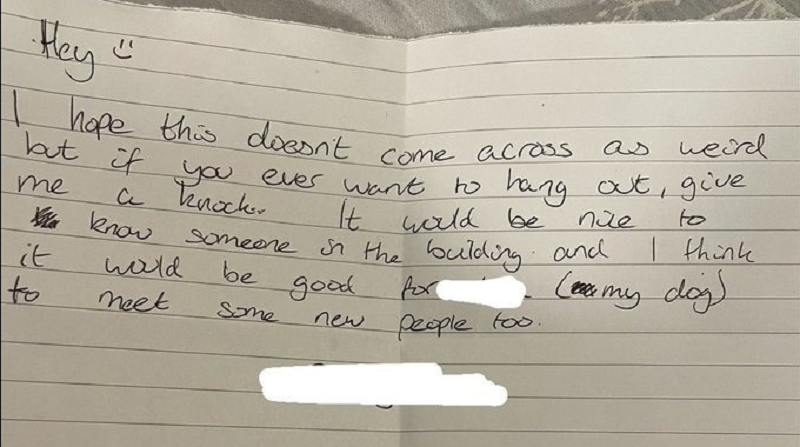 Hey :)
I hope this doesn't come across as weird
but if you ever want to hang out, give
me a knock. It would be nice to
know someone in the building and I think
it would be good for (my dog)
to meet some new people too.